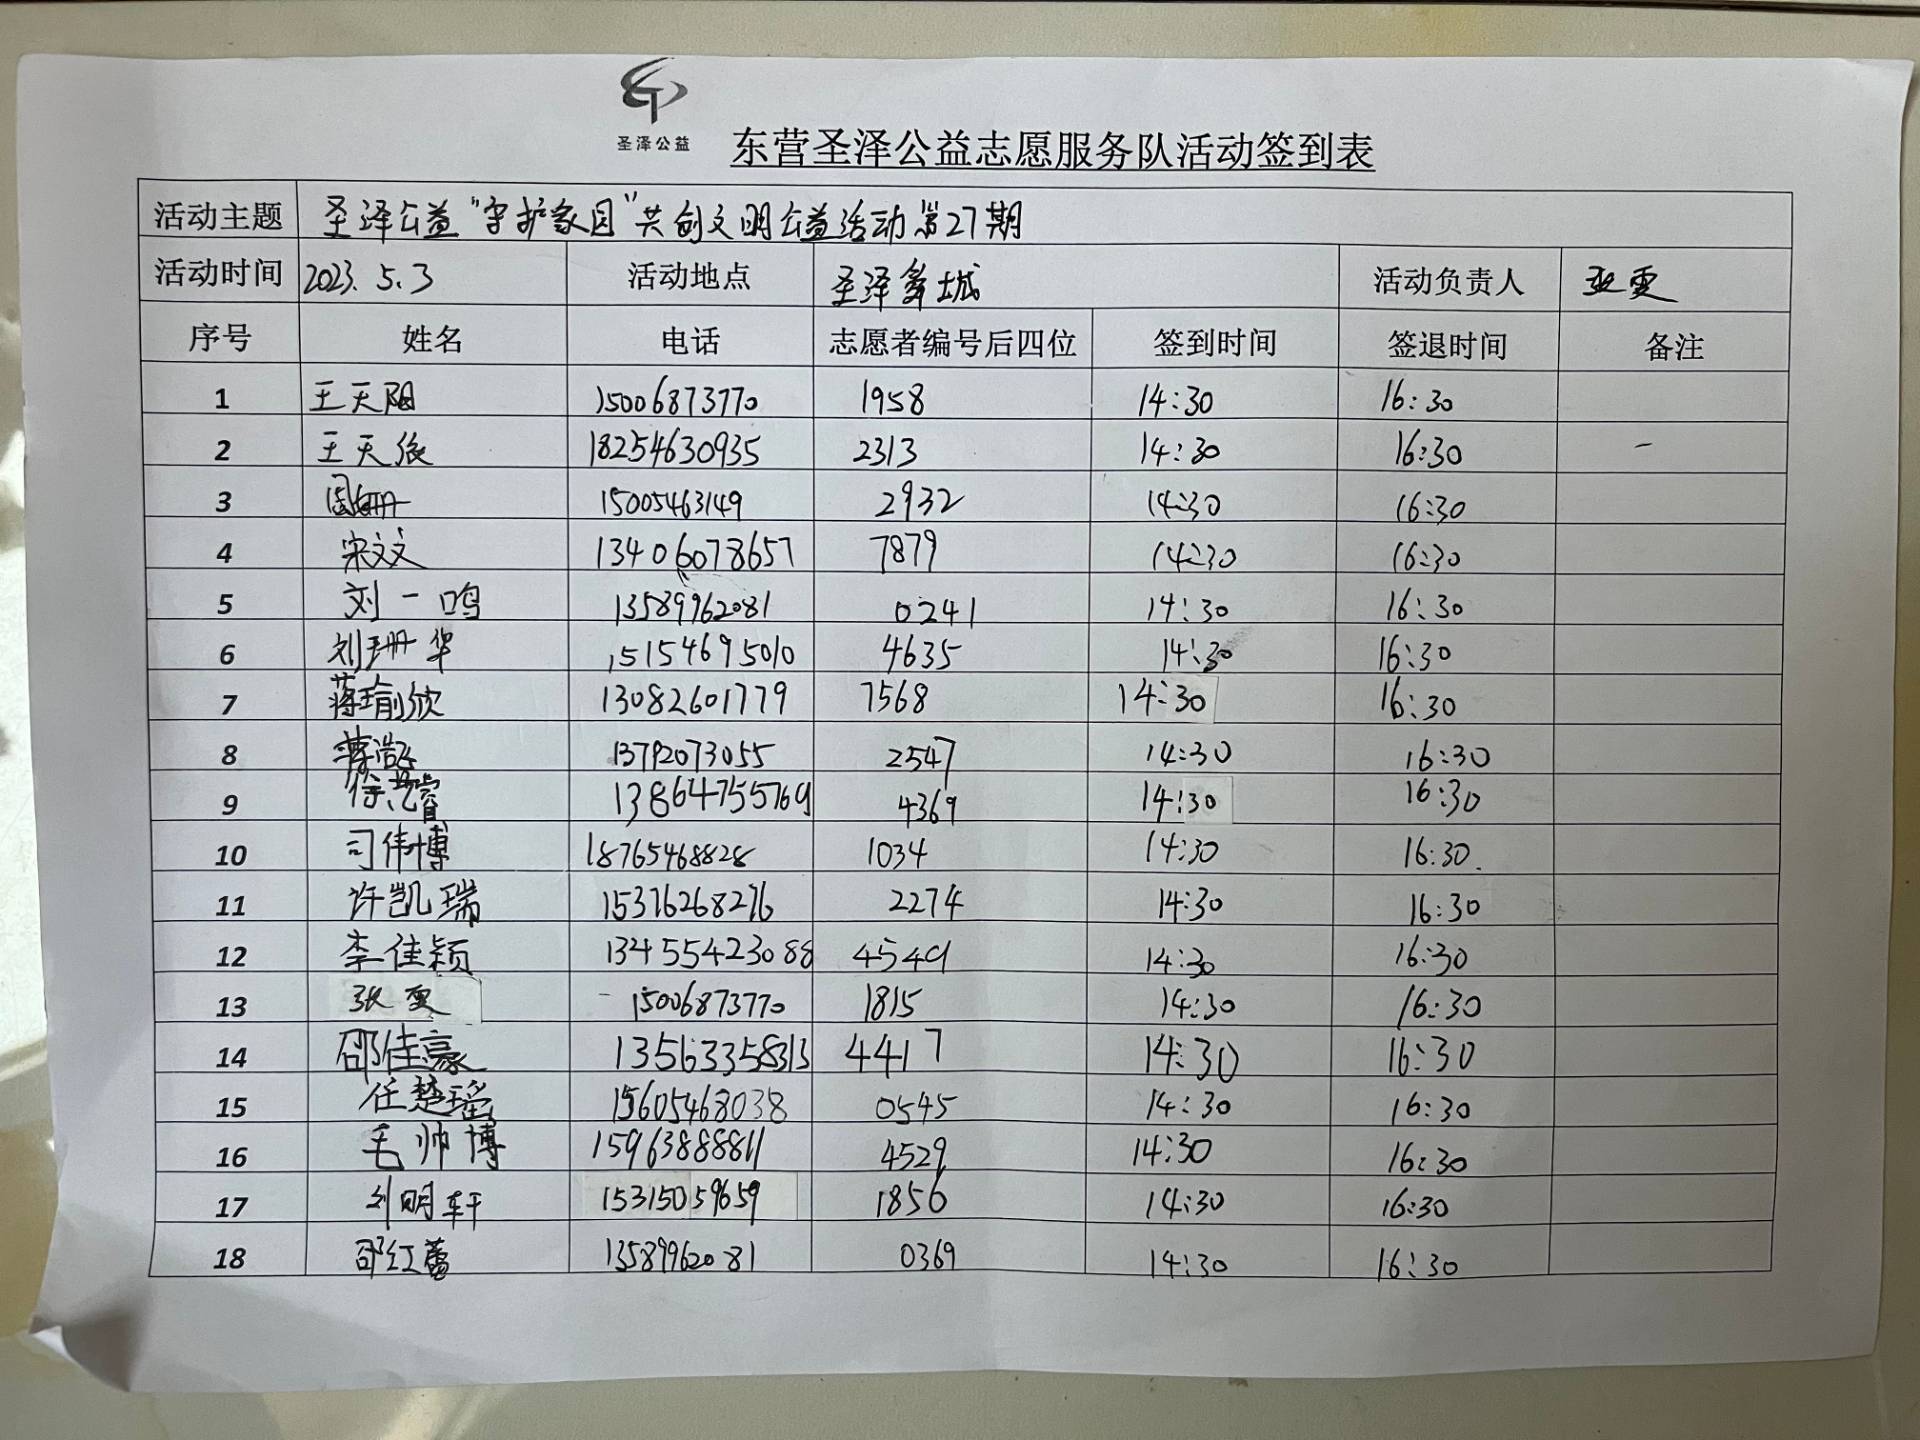 圣泽公益
东营圣泽公益志愿服务队活动签到表
活动主题 圣泽公益“守护家园”共创文明公益活动第27期
活动时间 2023.5.3 活动地点 圣泽舞城 活动负责人 张雯
序号 姓名 电话 志愿者编号后四位 签到时间 签退时间 备注
1 王天阳 15006873770 1958 14:30 16:30
2 王天 18254630935 2313 14:30 16:30 -
3 周姗 15005463149 2932 14:30 16:30
4 宋文文 13406078657 7879 14:30 16:30
5 刘一鸣 13589962081 0241 14:30 16:30
6 刘珊华 15154695010 4635 14:30 16:30
7 蒋瑜欣 13082601779 7568 14:30 16:30
8 13792073055 2547 14:30 16:30
9 徐 睿 13864755769 4369 14:30 16:30
10 司伟博 18765468828 1034 14:30 16:30
11 许凯瑞 15376268276 2274 14:30 16:30
12 李佳颖 13455423088 4549 14:30 16:30
13 张雯 15006873770 1815 14:30 16:30
14 邵佳豪 13563358313 4417 14:30 16:30
15 任楚瑶 15605468038 0545 14:30 16:30
16 毛帅博 15963888811 4529 14:30 16:30
17 刘明轩 15315059659 1856 14:30 16:30
18 邵红蕾 13589962081 0369 14:30 16:30